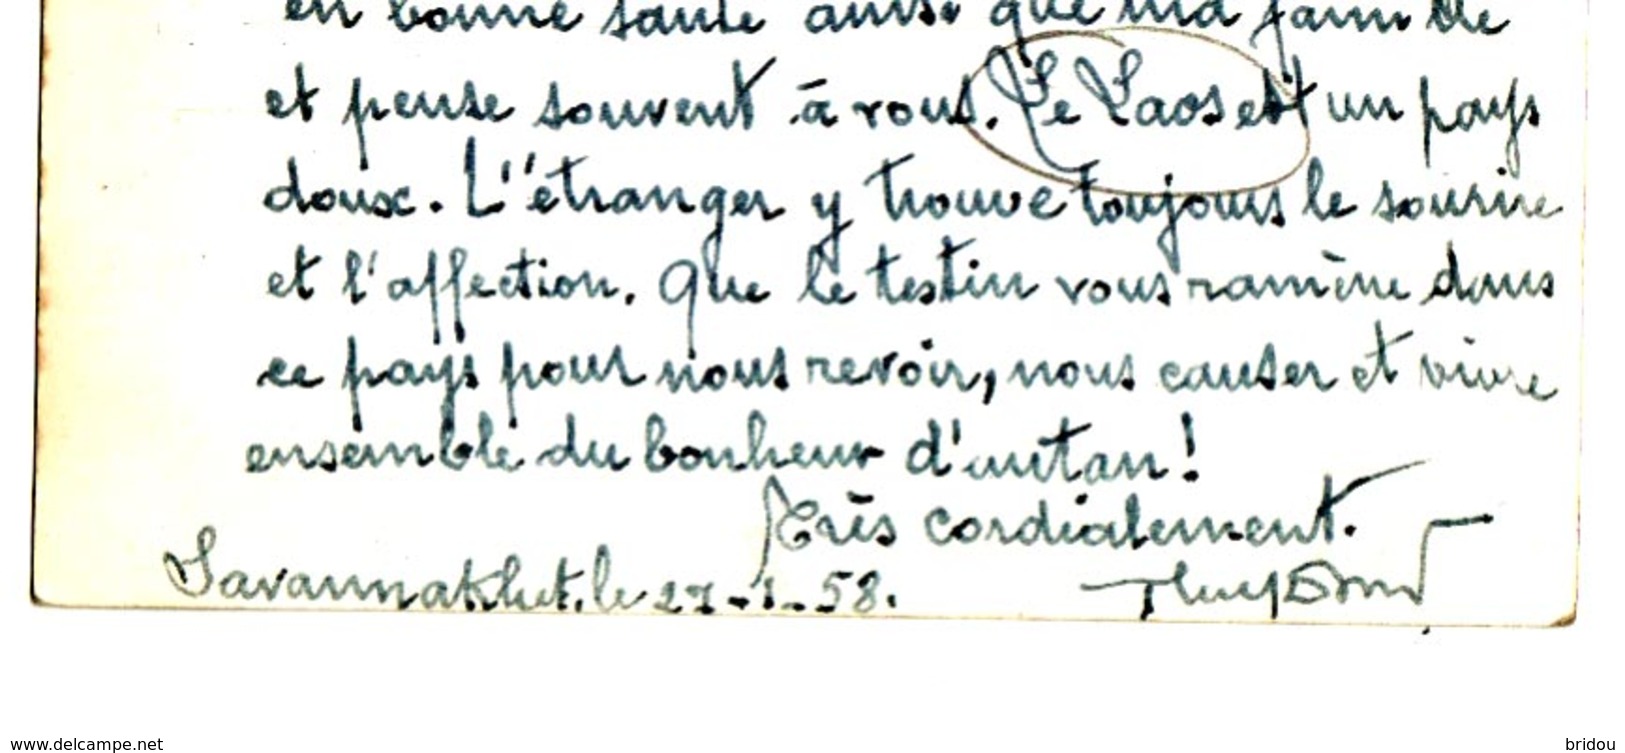 en bonne santé ainsi que ma famille
et pense souvent à vous. Le Laos est un pays
doux. L'étranger y trouve toujours le sourire
et l'affection. Que le testin vous ramène dans
ce pays pour nous revoir, nous causer et vivre
ensemble du bonheur d'antan!
Très cordialement.
Savannakhet, le 27-1-58.
www.delcampe.net
bridou